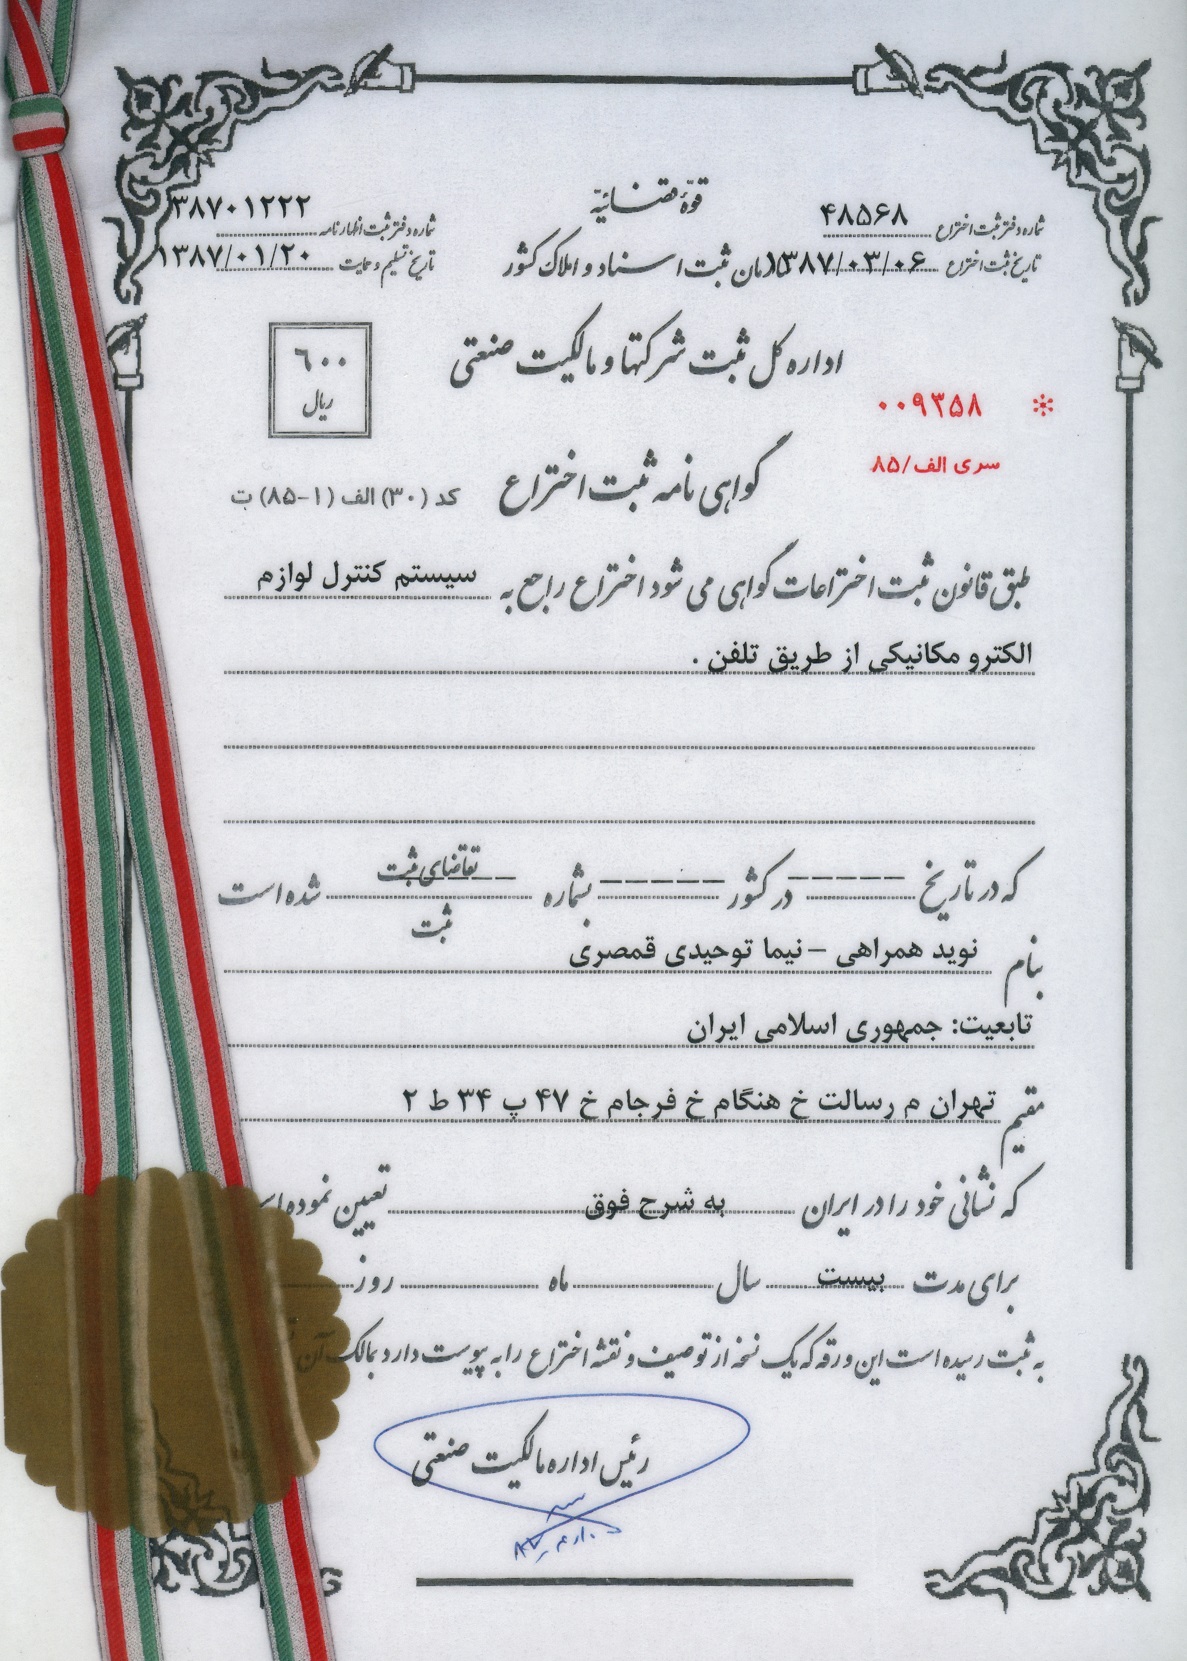 قوّهٔ قضائیّه
شماره دفتر ثبت اختراع ۴۸۵۶۸
شماره دفتر ثبت اظهارنامه ۳۸۷۰۱۲۲۲
تاریخ ثبت اختراع ۱۳۸۷/۰۳/۰۶
سازمان ثبت اسناد و املاک کشور
تاریخ تسلیم و حمایت ۱۳۸۷/۰۱/۲۰
اداره کل ثبت شرکتها و مالکیت صنعتی
۶۰۰
ریال
۰۰۹۳۵۸ *
سری الف/۸۵
گواهی نامه ثبت اختراع
کد (۳۰) الف (۱-۸۵) ت
طبق قانون ثبت اختراعات گواهی می شود اختراع راجع به سیستم کنترل لوازم
الکترو مکانیکی از طریق تلفن .
که در تاریخ ------ در کشور ------ بشماره ------ تقاضای ثبت شده است
ثبت
بنام نوید همراهی – نیما توحیدی قمصری
تابعیت: جمهوری اسلامی ایران
مقیم تهران م رسالت خ هنگام خ فرجام خ ۴۷ پ ۳۴ ط ۲
که نشانی خود را در ایران به شرح فوق تعیین نموده
برای مدت بیست سال ماه روز
به ثبت رسیده است این ورقه که یک نسخه از توصیف و نقشه اختراع را به پیوست دارد بمالک آن
رئیس اداره مالکیت صنعتی